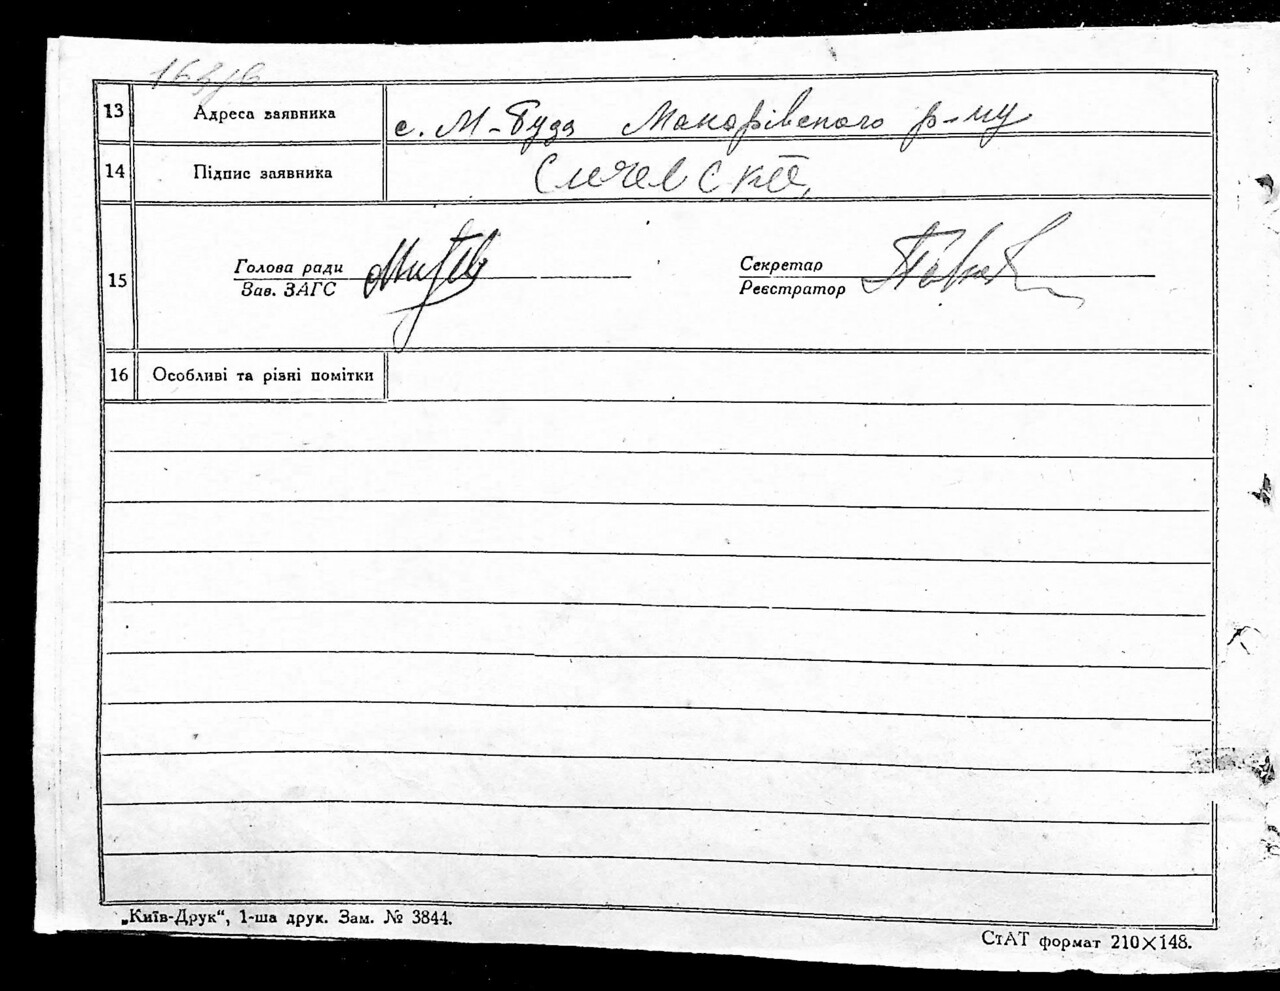 13 Адреса заявника с. М-Буда Макарівского р-ну
14 Підпис заявника
15 Голова ради Секретар
Зав. ЗАГС Реєстратор
16 Особливі та різні помітки
„Київ-Друк“, 1-ша друк. Зам. № 3844.
СтАТ формат 210×148.